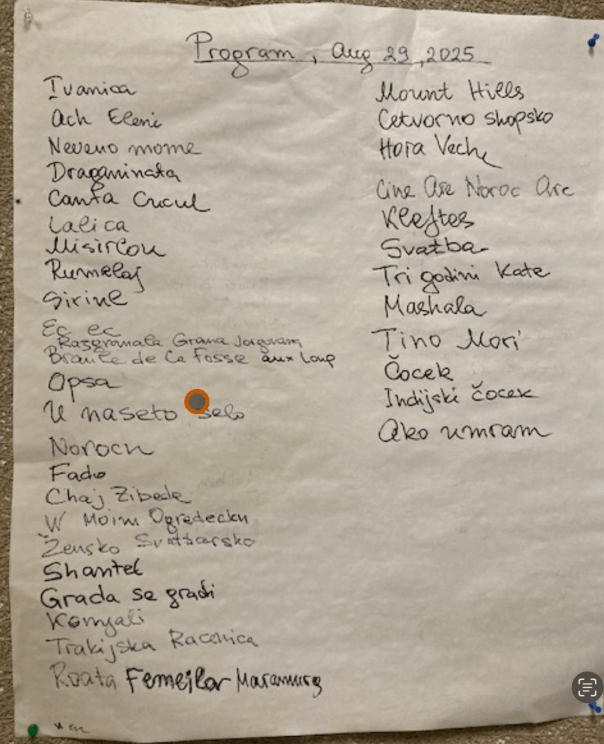 Program, Aug 29, 2025
Ivanica
Ach Eleni
Neveno mome
Draganinata
Canta Cucul
Lalica
Misirlou
Rumelaj
Sirine
Ec ec
Razgranala Grana Jorgovana
Branle de la Fosse aux Loup
Opsa
U naseto selo
Norocu
Fado
Chaj Zibede
W Moim Ogrodecku
Žensko Svatbarsko
Shantel
Grada se gradi
Komjali
Trakijska Racenica
Roata Femeilor Maramurs
Mount Hills
Cetvorno shopsko
Hora Veche
Cine Are Noroc Are
Kleftes
Svatba
Tri godini Kate
Mashala
Tino Mori
Čocek
Indijski čocek
Ako umram